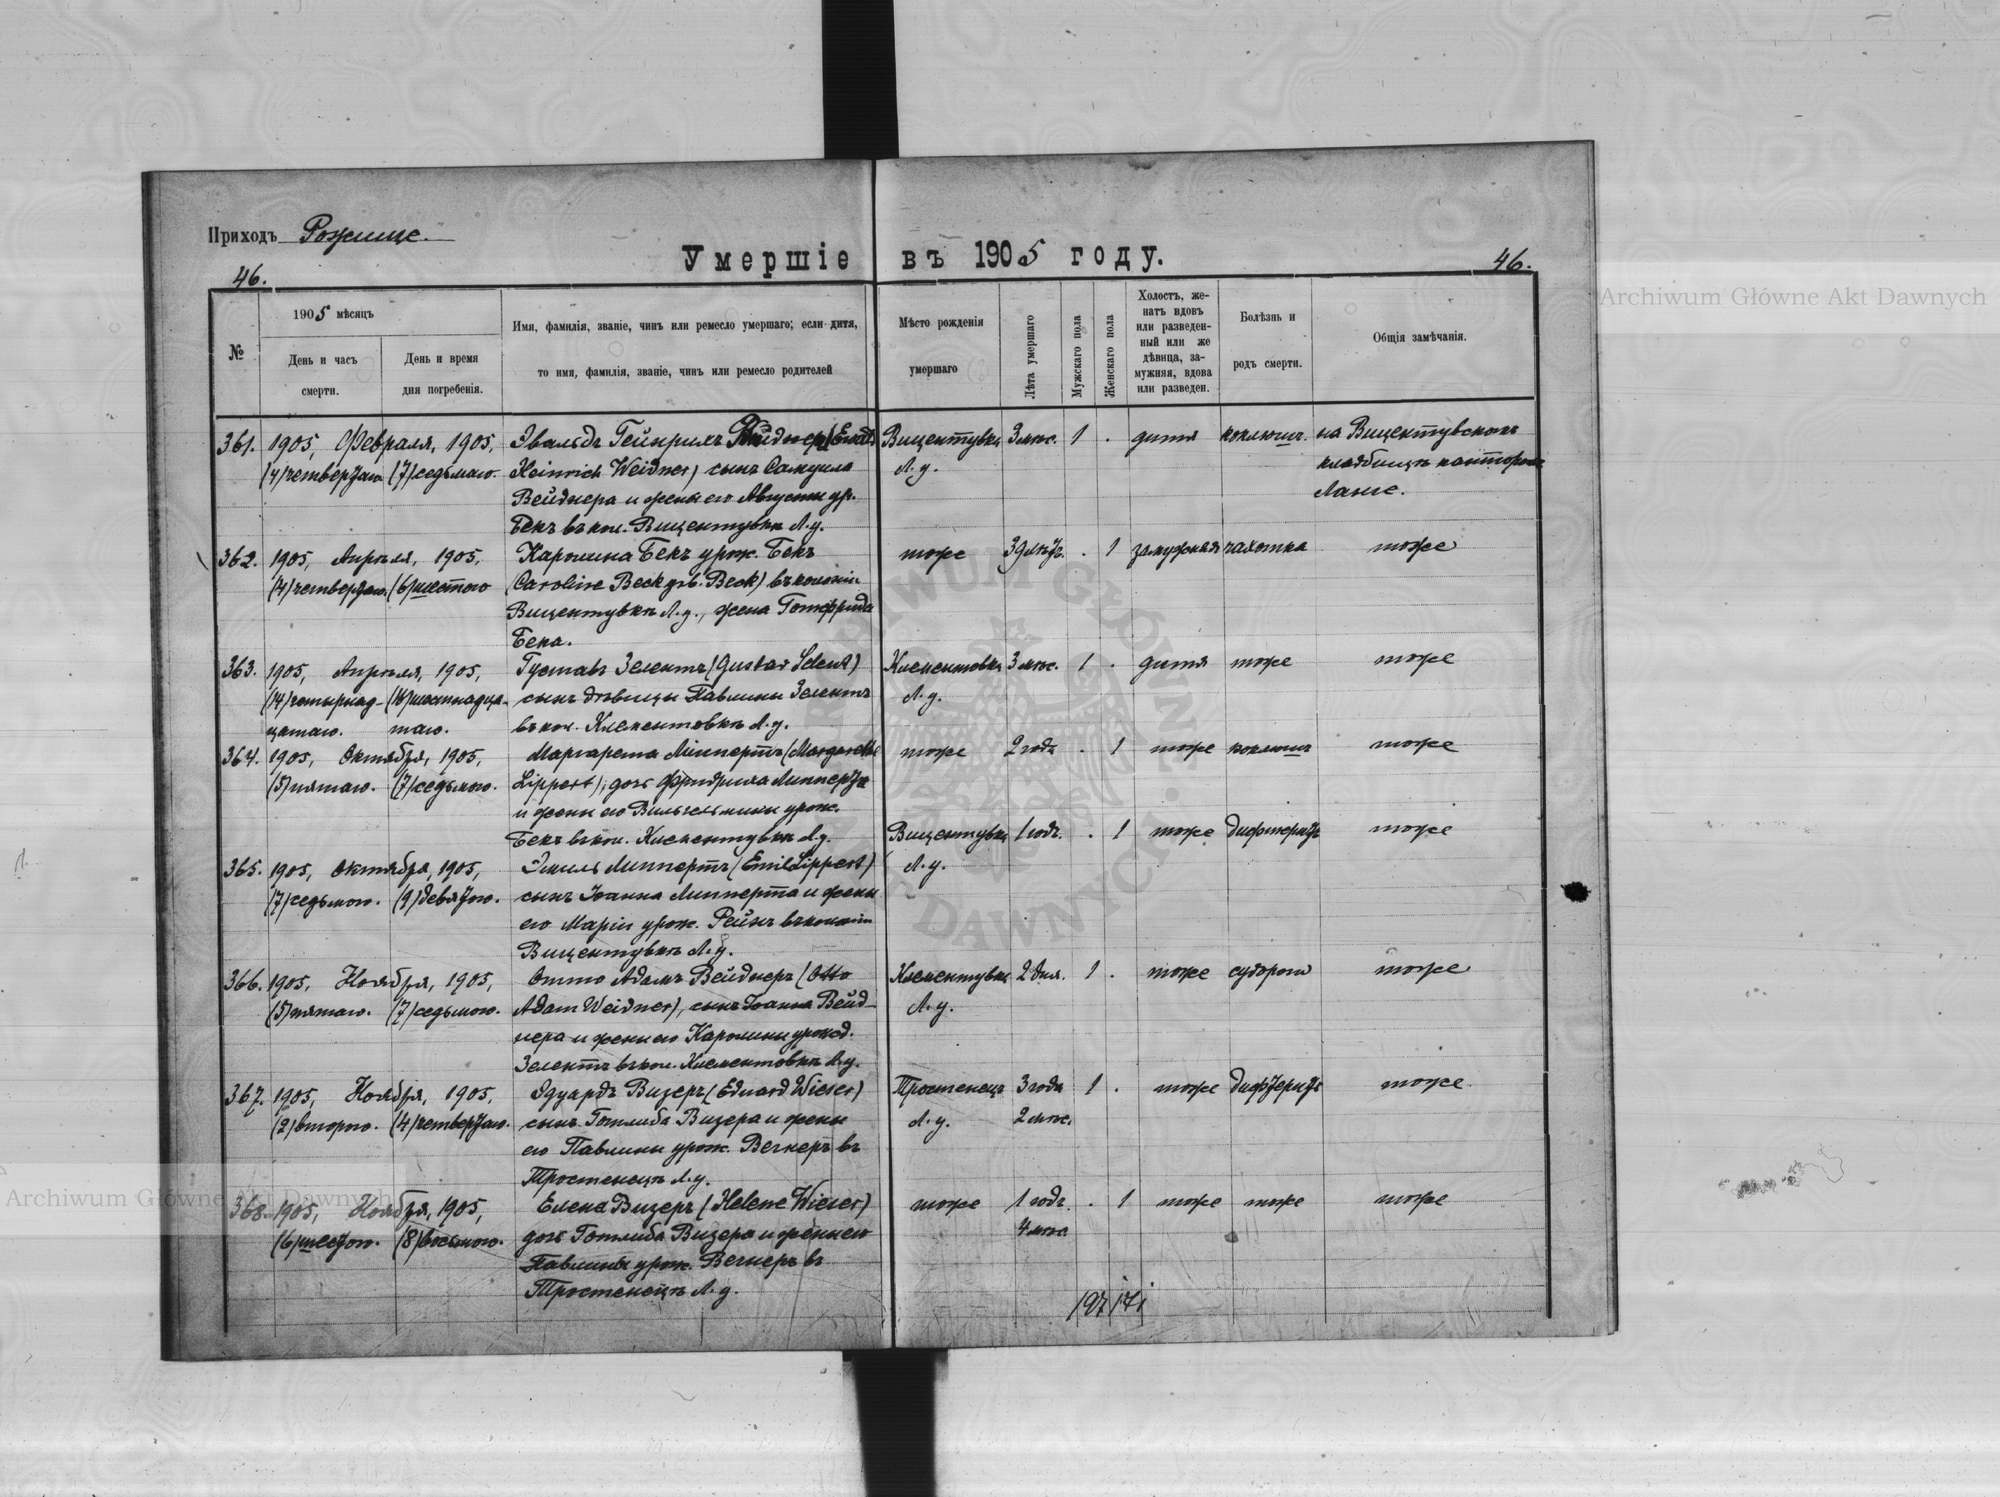 Приходъ Рожище.
Умершіе въ 1905 году.
46.
46.
№
1905 мѣсяцъ
День и часъ смерти.
День и время дня погребенія.
Имя, фамилія, званіе, чинъ или ремесло умершаго; если дитя,
то имя, фамилія, званіе, чинъ или ремесло родителей
Мѣсто рожденія
умершаго
Лѣта умершаго
Мужскаго пола
Женскаго пола
Холостъ, же-
натъ вдовъ
или разведен-
ный или же
дѣвица, за-
мужняя, вдова
или разведен.
Болѣзнь и
родъ смерти.
Общія замѣчанія.
361. 1905, Февраля, 1905, Эвальдъ Гейнрихъ Вейднеръ (Ewald Вицентувка 3 мѣс. 1 . дитя коклюшъ. на Вицентувскомъ
(4) четвертаго. (7) седьмаго. Heinrich Weidner) сынъ Самуила Л. у. кладбищѣ канторомъ
Вейднера и жены его Августы ур. Ланге.
Бекъ въ кол. Вицентувкѣ Л. у.
362. 1905, Апрѣля, 1905, Каролина Бекъ урож. Бекъ тоже 39 лѣтъ. . 1 замужняя чахотка тоже
(4) четвертаго. (6) шестого (Caroline Beck geb. Beck) въ колоніи
Вицентувкѣ Л. у., жена Готфрида
Бека.
363. 1905, Апрѣля, 1905, Густавъ Зелентъ (Gustav Selent) Клементовка 3 мѣс. 1 . дитя тоже тоже
(14) четырнад- (16) шестнадца- сынъ дѣвицы Павлины Зелентъ Л. у.
цатаго. таго. въ кол. Клементовкѣ Л. у.
364. 1905, Октября, 1905, Маргарета Липпертъ (Margarethe тоже 2 года . 1 тоже коклюшъ тоже
(5) пятаго. (7) седьмого. Lippert), дочь Фридриха Липперта
и жены его Вильгельмины урож.
Бекъ въ кол. Клементувкѣ Л. у. Вицентувка 1 годъ. . 1 тоже дифтеритъ тоже
365. 1905, Октября, 1905, Эмиль Липпертъ (Emil Lippert) Л. у.
(7) седьмого. (9) девятого. сынъ Іоанна Липперта и жены
его Маріи урож. Рейнъ въ колоніи
Вицентувкѣ Л. у.
366. 1905, Ноября, 1905, Отто Адамъ Вейднеръ (Otto Клементувка 2 дня. 1 . тоже судороги тоже
(5) пятаго. (7) седьмого. Adam Weidner), сынъ Іоанна Вейд- Л. у.
нера и жены его Каролины урожд.
Зелентъ въ кол. Клементовкѣ Л. у.
367. 1905, Ноября, 1905, Эдуардъ Визеръ (Eduard Wieser) Тростенецъ 3 года 1 . тоже дифтеритъ тоже
(2) второго. (4) четвертаго. сынъ Готлиба Визера и жены Л. у. 2 мѣс.
его Павлины урож. Вегнеръ въ
Тростенецѣ Л. у.
368. 1905, Ноября, 1905, Елена Визеръ (Helene Wieser) тоже 1 годъ. . 1 тоже тоже тоже
(6) шестого. (8) восьмого. дочь Готлиба Визера и жены его 4 мѣс.
Павлины урож. Вегнеръ въ
Тростенецѣ Л. у.
197 171
Archiwum Główne Akt Dawnych
Archiwum Główne Akt Dawnych